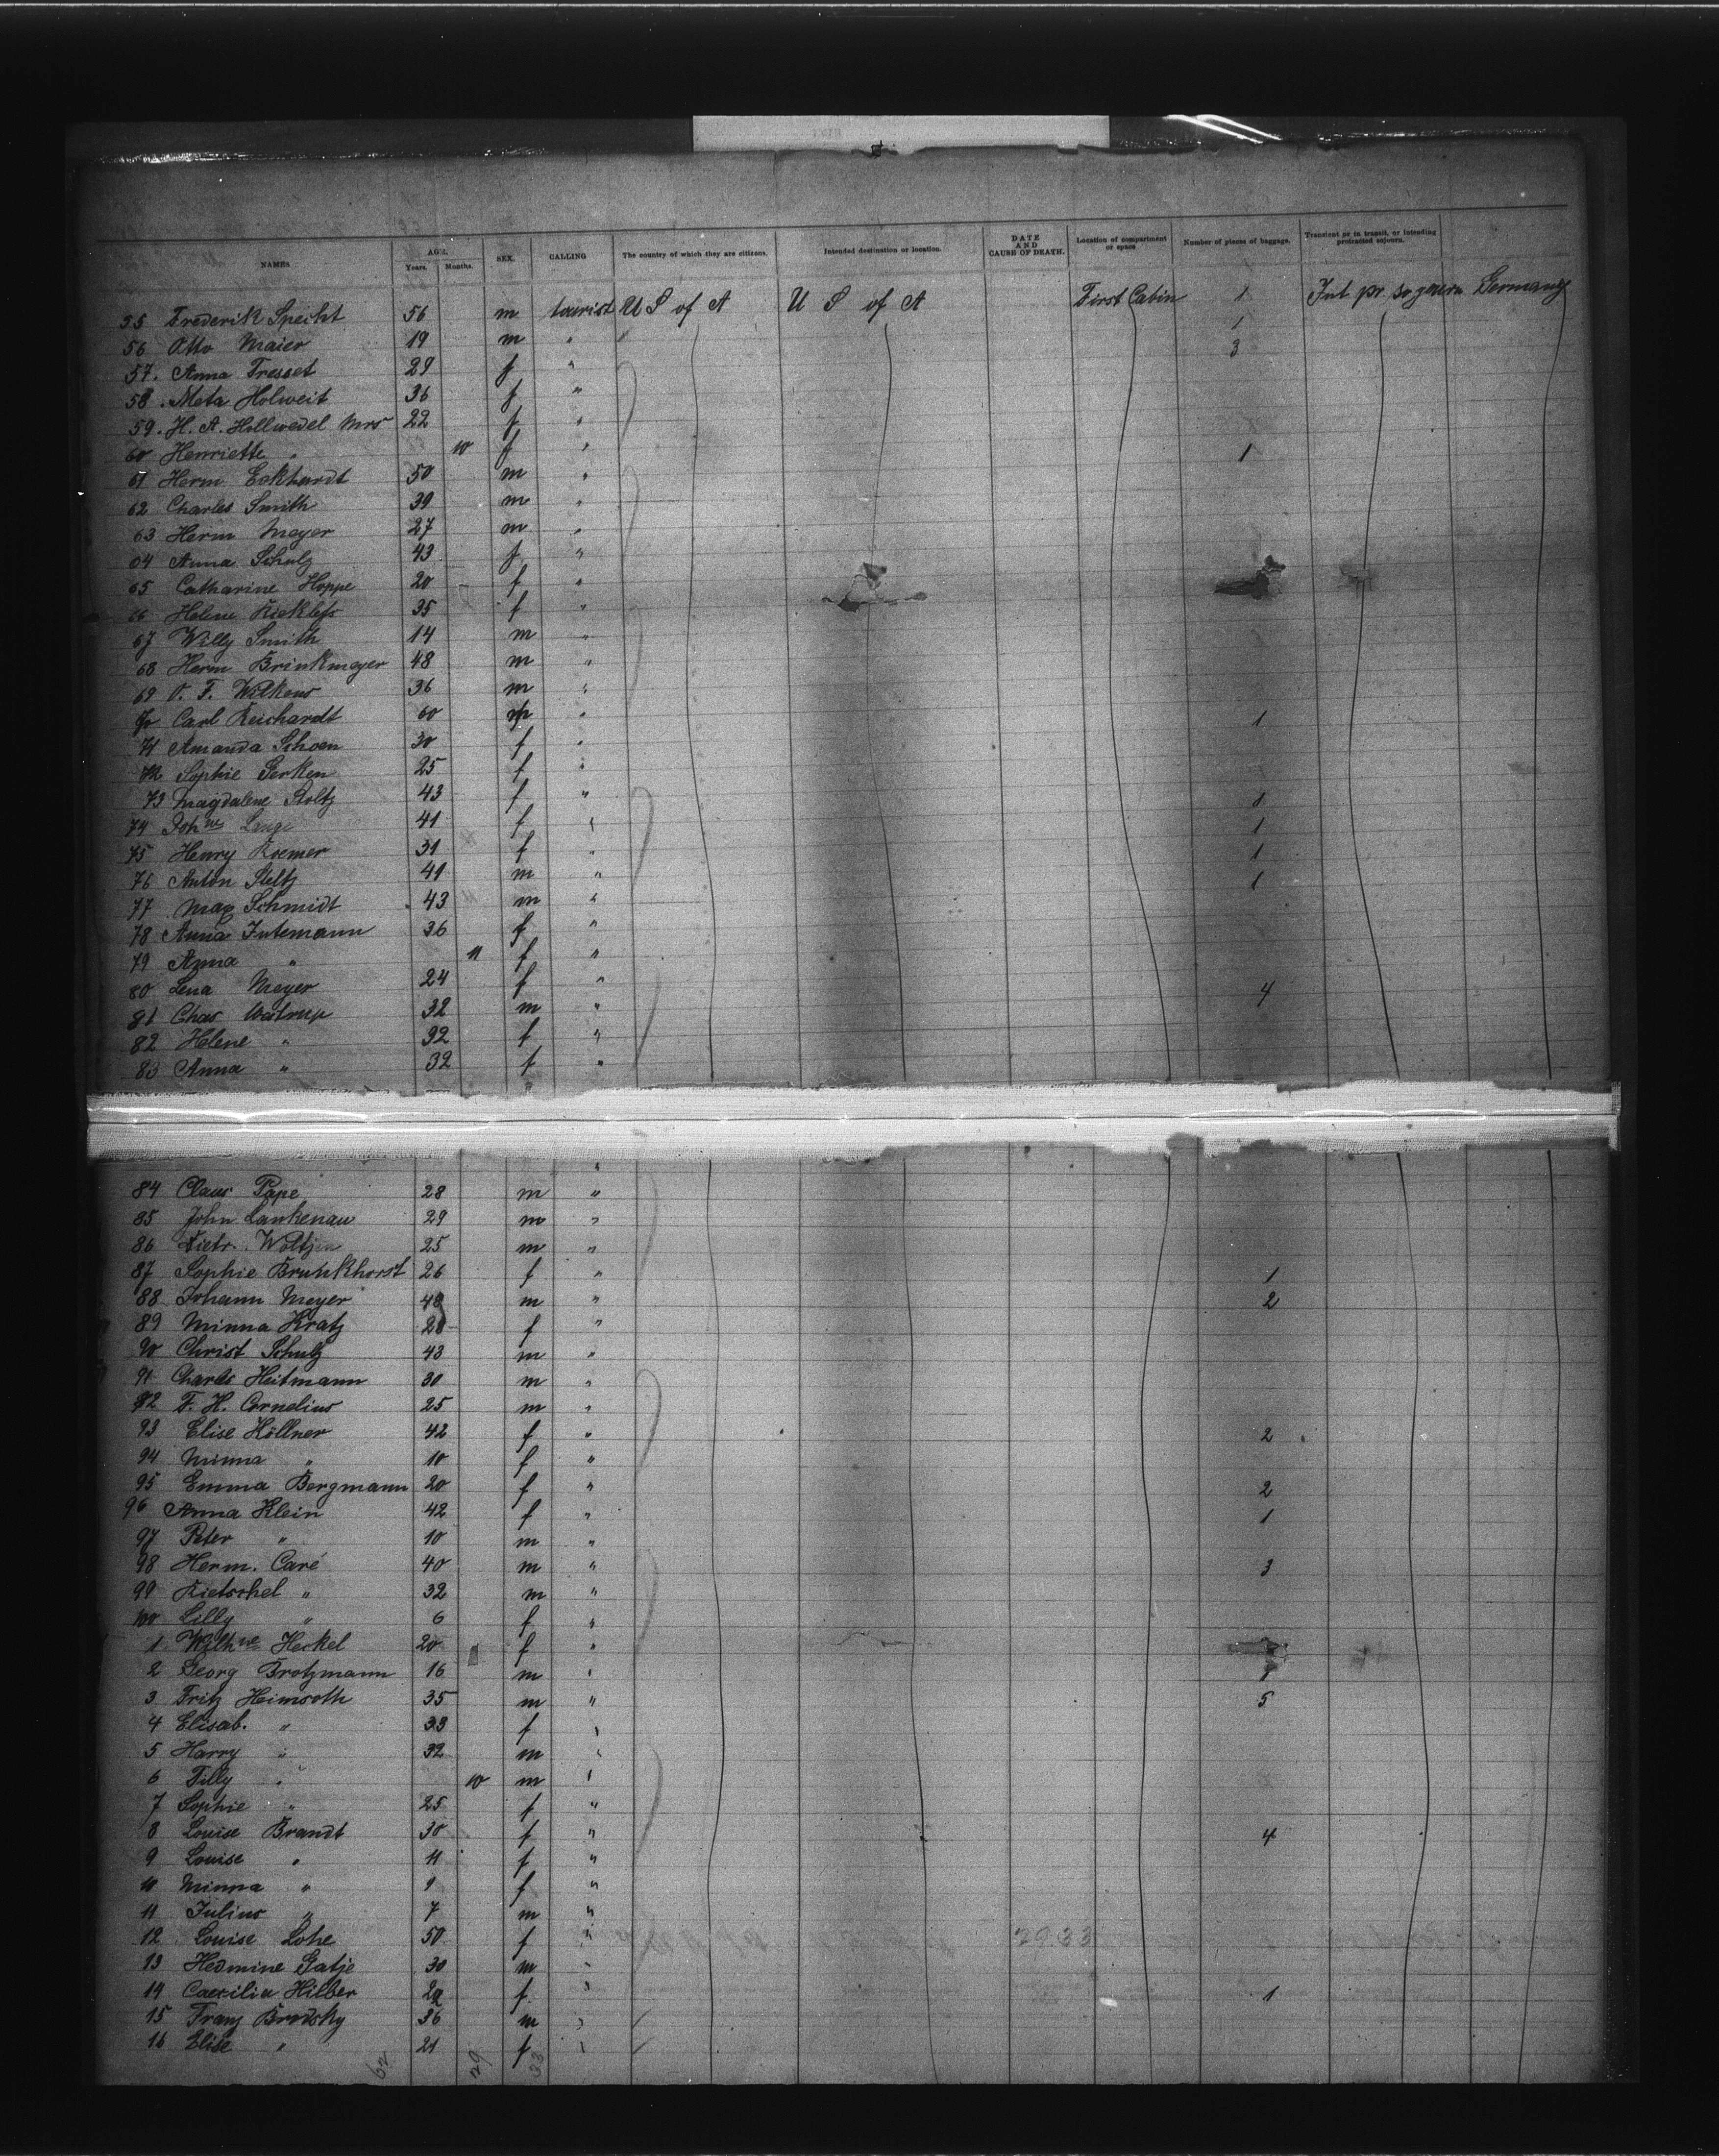 NAMES AGE. Years. Months. SEX. CALLING The country of which they are citizens. Intended destination or location. DATE AND CAUSE OF DEATH. Location of compartment or space Number of pieces of baggage. Transient or in transit, or intending protracted sojourn.
55 Frederik Specht 56 m tourist U S of A U S of A First Cabin 1 Int pr sojourn Germany
56 Otto Maier 19 m " 1
57. Anna Tresset 29 f " 3
58. Meta Holweit 36 f "
59. H. A. Hollwedel Mrs 22 f "
60 Henriette " 10 f " 1
61 Herm Eckhardt 50 m "
62 Charles Smith 39 m "
63 Herm Meyer 27 m "
64 Anna Schulz 43 f "
65 Catharine Hoppe 20 f "
66 Helene Ricklefs 35 f "
67 Willy Smith 14 m "
68 Herm Brinkmeyer 48 m "
69 O. F. Wilkens 36 m "
70 Carl Reichardt 60 m " 1
71 Amanda Schoen 30 f "
72 Sophie Gerken 25 f "
73 Magdalene Stoltz 43 f " 1
74 Johne Lange 41 f " 1
75 Henry Roemer 31 f " 1
76 Anton Steltz 41 m " 1
77 Max Schmidt 43 m "
78 Anna Intemann 36 f "
79 Anna " 11 f "
80 Lena Meyer 24 f " 4
81 Chas Wastrup 32 m "
82 Helene " 32 f "
83 Anna " 32 f "
84 Claus Pape 28 m "
85 John Lankenau 29 m "
86 Dietr. Woltjen 25 m "
87 Sophie Brunkhorst 26 f " 1
88 Johann Meyer 48 m " 2
89 Minna Kratz 28 f "
90 Christ Schulz 43 m "
91 Charles Heitmann 30 m "
92 F. H. Cornelius 25 m "
93 Elise Höllner 42 f " 2
94 Minna " 10 f "
95 Emma Bergmann 20 f " 2
96 Anna Klein 42 f " 1
97 Peter " 10 m "
98 Herm. Caré 40 m " 3
99 Rietschel " 32 m "
100 Lilly " 6 f "
1 Wilhne Heckel 20 f "
2 Georg Brotzmann 16 m " 1
3 Fritz Heimsoth 35 m " 5
4 Elisab. " 33 f "
5 Harry " 32 m "
6 Tilly " 10 m "
7 Sophie " 25 f "
8 Louise Brandt 30 f " 4
9 Louise " 11 f "
10 Minna " 9 f "
11 Julius " 7 m "
12 Louise Lohe 50 f " 29.33
13 Hedmine Gatje 30 m "
14 Caecilia Hilber 22 f " 1
15 Franz Brodsky 36 m "
16 Elise " 21 f "
62 29 33